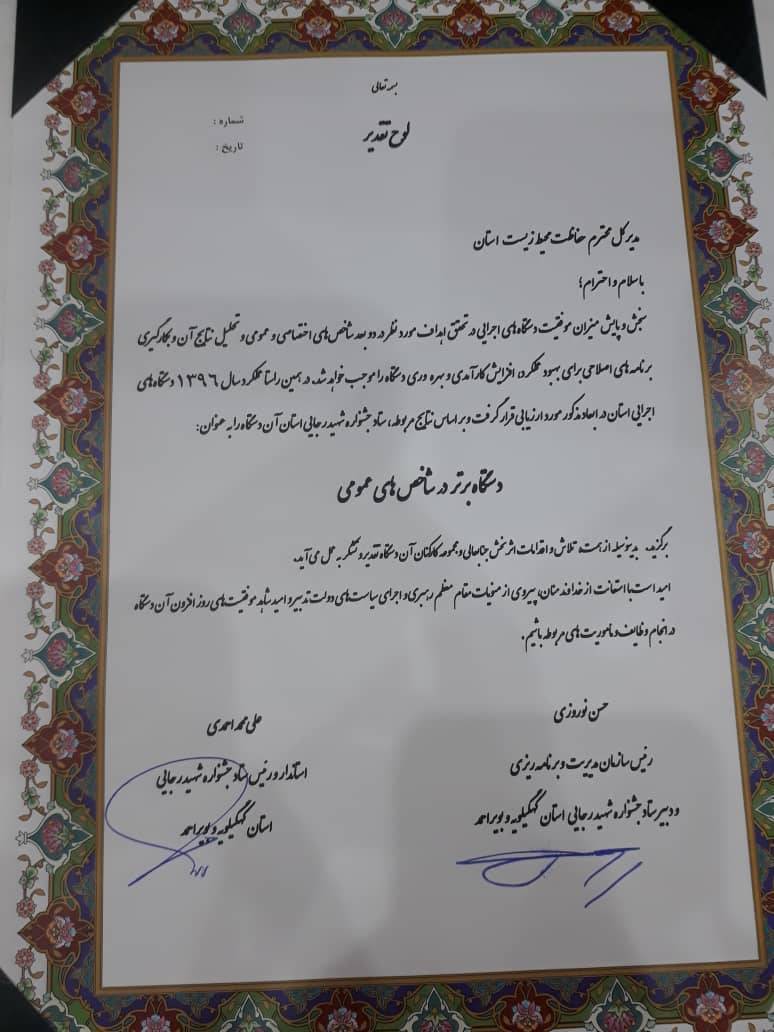 بسمه تعالی
شماره :
لوح تقدیر
تاریخ :
مدیر کل محترم حفاظت محیط زیست استان
با سلام و احترام؛
سنجش و پایش میزان موفقیت دستگاه های اجرایی در تحقق اهداف مورد نظر در دو بعد شاخص های اختصاصی و عمومی و تحلیل نتایج آن و بکارگیری
برنامه های اصلاحی برای بهبود عملکرد، افزایش کارآمدی و بهره وری دستگاه را موجب خواهد شد. در همین راستا عملکرد سال ۱۳۹۶ دستگاه های
اجرایی استان در ابعاد مذکور مورد ارزیابی قرار گرفت و بر اساس نتایج مربوطه، ستاد جشنواره شهید رجایی استان آن دستگاه را به عنوان:
دستگاه برتر در شاخص های عمومی
برگزید. بدینوسیله از همت، تلاش و اقدامات اثربخش جنابعالی و مجموعه کارکنان آن دستگاه تقدیر و تشکر به عمل می آید.
امید است با استعانت از خداوند منان، پیروی از منویات مقام معظم رهبری و اجرای سیاست های دولت تدبیر و امید شاهد موفقیت های روز افزون آن دستگاه
در انجام وظایف و مأموریت های مربوطه باشیم.
حسن نوروزی
رئیس سازمان مدیریت و برنامه ریزی
و دبیر ستاد جشنواره شهید رجایی استان کهگیلویه و بویراحمد
علی محمد احمدی
استاندار و رئیس ستاد جشنواره شهید رجایی
استان کهگیلویه و بویراحمد